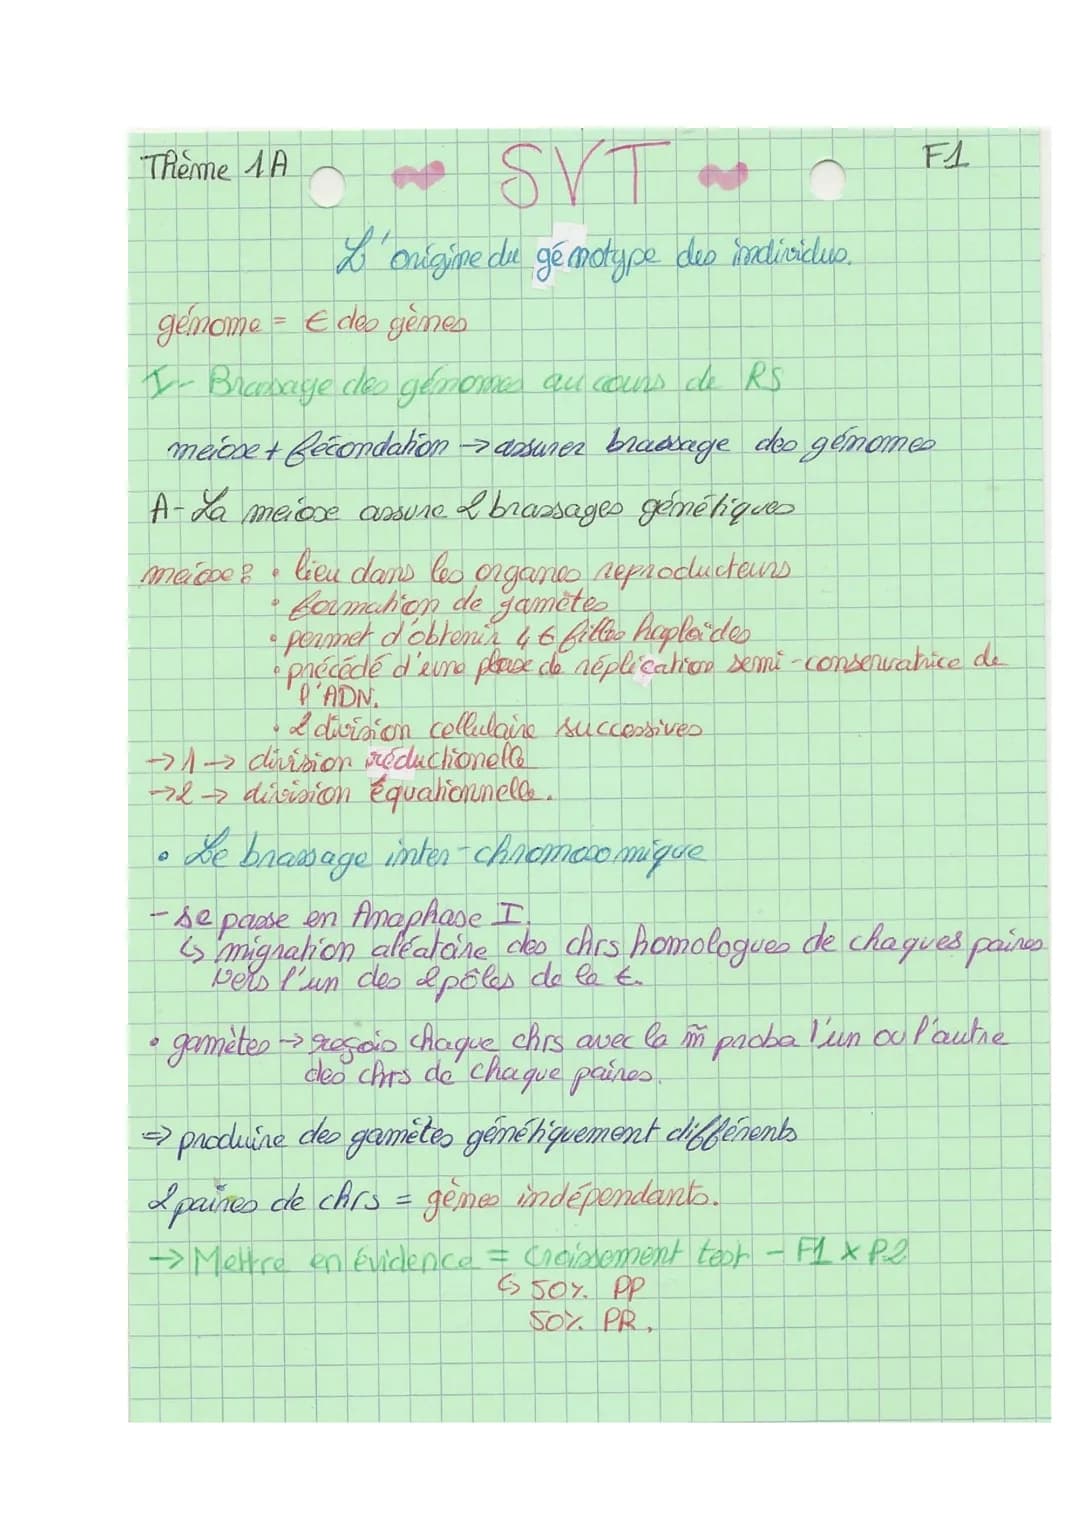 Thème 1A
SVT
F1
L'origine du génotype des individus.
génome = € des gènes
I- Brassage des génomes au cours de RS
meiose + fécondation → assurer brassage des génomes
A- La meiose assure 2 brassages génétiques
meiose : • lieu dans les organes reproducteurs
• formation de gamètes
• permet d'obtenir 4 € filles haploïdes
• précédé d'une phase de réplication semi-conservatrice de
l'ADN.
• 2 division cellulaire successives
→ 1 → division réductionelle
→ 2 → division équationnelle.
• Le brassage inter-chromosomique
- se passe en Anaphase I.
↳ migration aléatoire des chrs homologues de chaques paires
vers l'un des 2 pôles de la €.
• gamètes → reçois chaque chrs avec la m̃ proba l'un ou l'autre
des chrs de chaque paires.
⇒ produire des gamètes génétiquement différents
2 paires de chrs = gènes indépendants.
→ Mettre en évidence = Croissement test - F1 x P2
↳ 50% PP
50% PR.